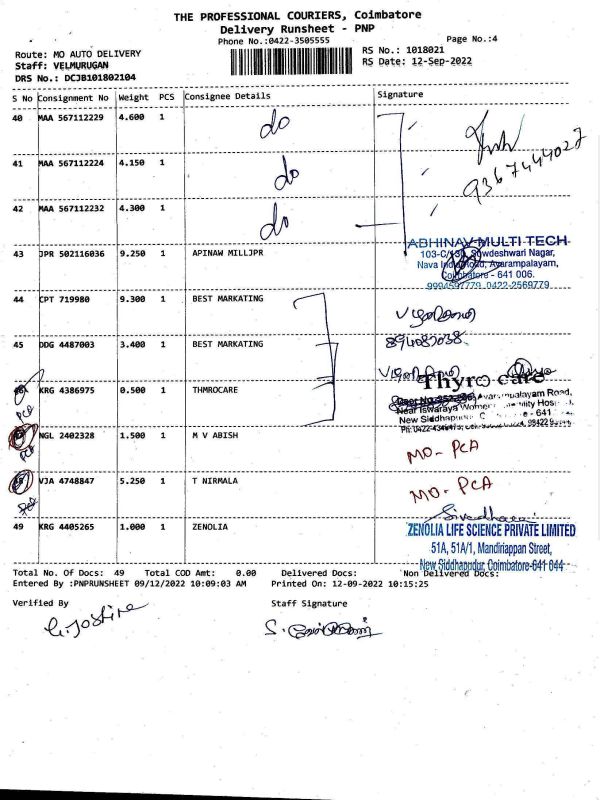 THE PROFESSIONAL COURIERS, Coimbatore
Delivery Runsheet - PNP
Phone No.:0422-3505555
Page No.:4
Route: MO AUTO DELIVERY
RS No.: 1018021
Staff: VELMURUGAN
RS Date: 12-Sep-2022
DRS No.: DCJB101802104
S No Consignment No Weight PCS Consignee Details Signature
40 MAA 567112229 4.600 1 do
9367444027
41 MAA 567112224 4.150 1 do
42 MAA 567112232 4.300 1 do
ABHINAV MULTI TECH
43 JPR 502116036 9.250 1 APINAW MILLJPR
Sowdeshwari Nagar,
Avarampalayam,
Coimbatore - 641 006.
9994597779, 0422-2569779
44 CPT 719980 9.300 1 BEST MARKATING
45 DDG 4487003 3.400 1 BEST MARKATING
Thyro care
KRG 4386975 0.500 1 THMROCARE
Near Iswaraya Women
New Siddhapudur
NGL 2402328 1.500 1 M V ABISH
MO- PCA
VJA 4748847 5.250 1 T NIRMALA
MO- PCA
49 KRG 4405265 1.000 1 ZENOLIA
ZENOLIA LIFE SCIENCE PRIVATE LIMITED
51A, 51A/1, Mandiriappan Street,
New Siddhapudur, Coimbatore-641 044
Total No. Of Docs: 49 Total COD Amt: 0.00 Delivered Docs: Non Delivered Docs:
Entered By :PNPRUNSHEET 09/12/2022 10:09:03 AM Printed On: 12-09-2022 10:15:25
Verified By Staff Signature